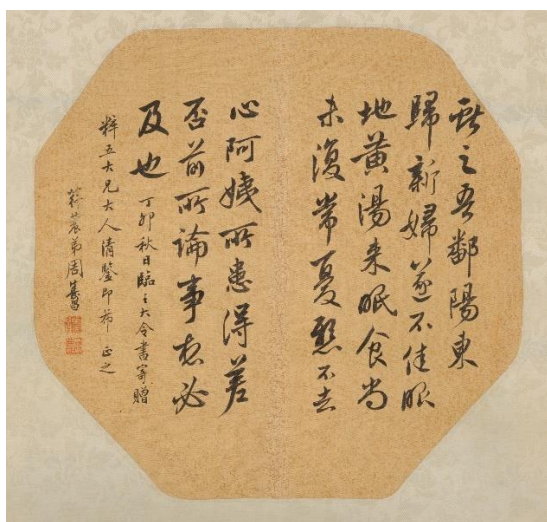 獻之吾鄱陽東
歸新婦遂不佳服
地黃湯來眠食尚
未復常憂懸不去
心阿姨所患得差
否前所論事想必
及也 丁卯秋日臨王大令書寄贈
粹五大兄大人清鑒即希 正之
農弟周